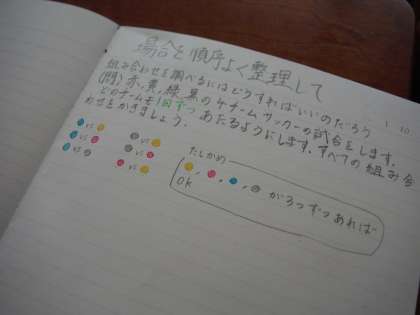 場合を順序よく整理して
組み合わせを調べるにはどうすればいいのだろう
(問) 赤、黄、緑、黒の4チームでサッカーの試合をします。
どのチームも1回ずつあたるようにします。すべての組み合
わせをかきましょう。
vs vs
vs vs
vs vs
たしかめ
、 、 、 が3つずつあれば
OK